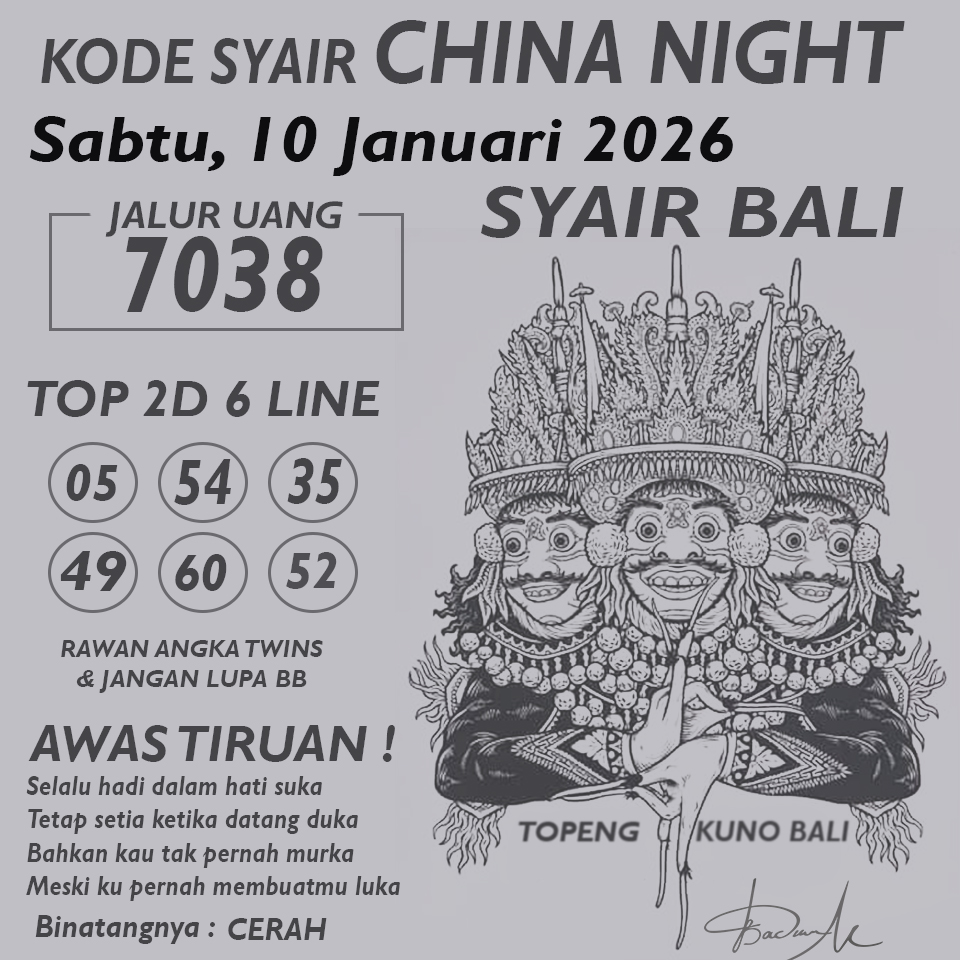 KODE SYAIR CHINA NIGHT
Sabtu, 10 Januari 2026
SYAIR BALI
JALUR UANG
7038
TOP 2D 6 LINE
05 54 35
49 60 52
RAWAN ANGKA TWINS
& JANGAN LUPA BB
AWAS TIRUAN !
Selalu hadi dalam hati suka
Tetap setia ketika datang duka
Bahkan kau tak pernah murka
Meski ku pernah membuatmu luka
Binatangnya : CERAH
TOPENG KUNO BALI